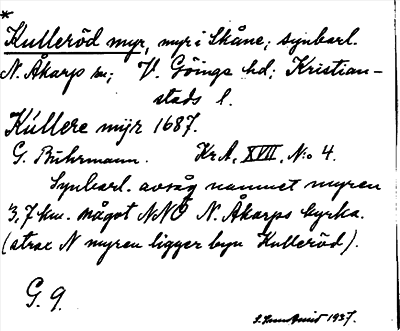 *
Kulleröd myr, myr i Skåne; synbarl.
N. Åkarps sn; V. Göings hd; Kristian-
stads l.
Kullere mijr 1687.
G. Buhrmann. Kr. A, XVII, N:o 4.
Synbarl. avsåg namnet myren
3,7 km. något NNO N. Åkarps kyrka.
(strax N myren ligger byn Kulleröd).
G. 9.
1937.